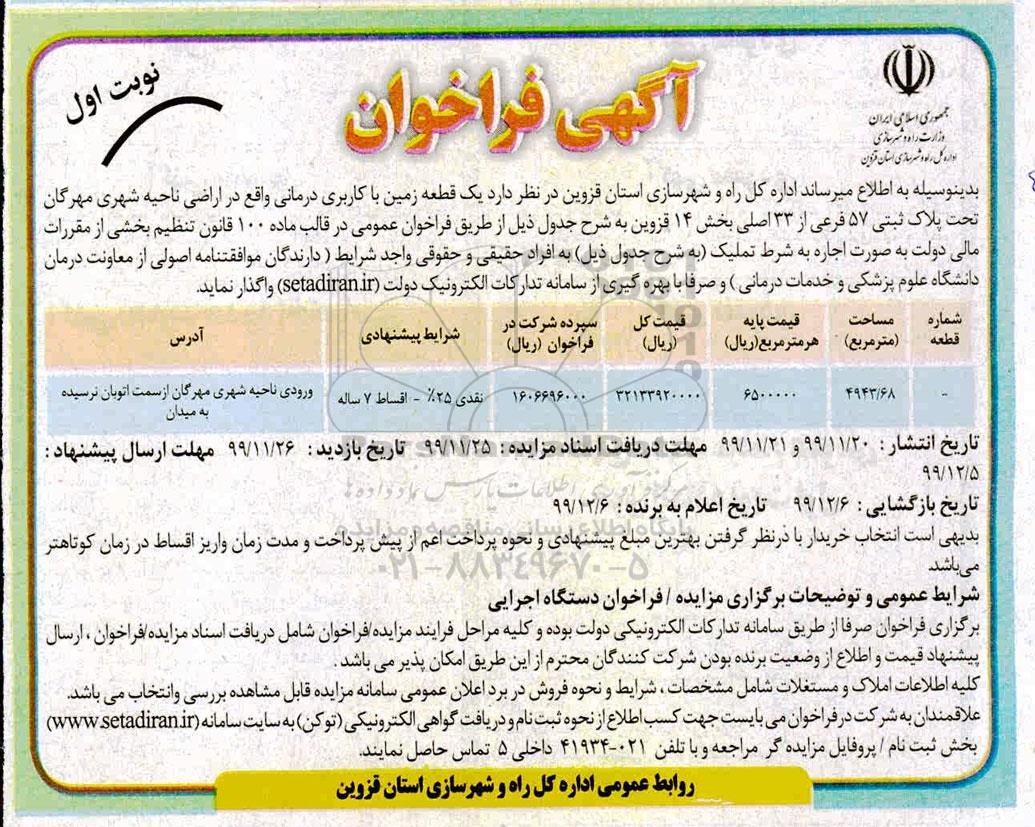 جمهوری اسلامی ایران
وزارت راه و شهرسازی
اداره کل راه و شهرسازی استان قزوین
آگهی فراخوان
نوبت اول
بدینوسیله به اطلاع میرساند اداره کل راه و شهرسازی استان قزوین در نظر دارد یک قطعه زمین با کاربری درمانی واقع در اراضی ناحیه شهری مهرگان
تحت پلاک ثبتی ۵۷ فرعی از ۳۳ اصلی بخش ۱۴ قزوین به شرح جدول ذیل از طریق فراخوان عمومی در قالب ماده ۱۰۰ قانون تنظیم بخشی از مقررات
مالی دولت به صورت اجاره به شرط تملیک (به شرح جدول ذیل) به افراد حقیقی و حقوقی واجد شرایط ( دارندگان موافقتنامه اصولی از معاونت درمان
دانشگاه علوم پزشکی و خدمات درمانی ) و صرفا با بهره گیری از سامانه تدارکات الکترونیک دولت (setadiran.ir) واگذار نماید.
شماره قطعه | مساحت (مترمربع) | قیمت پایه هرمترمربع(ریال) | قیمت کل (ریال) | سپرده شرکت در فراخوان (ریال) | شرایط پیشنهادی | آدرس
- | ۴۹۴۳/۶۸ | ۶۵۰۰۰۰۰ | ۳۲۱۳۳۹۲۰۰۰۰ | ۱۶۰۶۶۹۶۰۰۰ | نقدی ۲۵٪ - اقساط ۷ ساله | ورودی ناحیه شهری مهرگان ازسمت اتوبان نرسیده به میدان
تاریخ انتشار : ۹۹/۱۱/۲۰ و ۹۹/۱۱/۲۱ مهلت دریافت اسناد مزایده : ۹۹/۱۱/۲۵ تاریخ بازدید : ۹۹/۱۱/۲۶ مهلت ارسال پیشنهاد :
۹۹/۱۲/۵
تاریخ بازگشایی : ۹۹/۱۲/۶ تاریخ اعلام به برنده : ۹۹/۱۲/۶
بدیهی است انتخاب خریدار با درنظر گرفتن بهترین مبلغ پیشنهادی و نحوه پرداخت اعم از پیش پرداخت و مدت زمان واریز اقساط در زمان کوتاهتر
می‌باشد
شرایط عمومی و توضیحات برگزاری مزایده / فراخوان دستگاه اجرایی
برگزاری فراخوان صرفا از طریق سامانه تدارکات الکترونیکی دولت بوده و کلیه مراحل فرایند مزایده/فراخوان شامل دریافت اسناد مزایده/فراخوان ، ارسال
پیشنهاد قیمت و اطلاع از وضعیت برنده بودن شرکت کنندگان محترم از این طریق امکان پذیر می باشد .
کلیه اطلاعات املاک و مستغلات شامل مشخصات ، شرایط و نحوه فروش در برد اعلان عمومی سامانه مزایده قابل مشاهده بررسی وانتخاب می باشد.
علاقمندان به شرکت در فراخوان می بایست جهت کسب اطلاع از نحوه ثبت نام و دریافت گواهی الکترونیکی (توکن) به سایت سامانه (www.setadiran.ir)
بخش ثبت نام / پروفایل مزایده گر مراجعه و با تلفن ۰۲۱-۴۱۹۳۴ داخلی ۵ تماس حاصل نمایند.
روابط عمومی اداره کل راه و شهرسازی استان قزوین
پایگاه اطلاع رسانی مناقصه و مزایده
۰۲۱-۸۸۳۴۹۶۷۰-۵